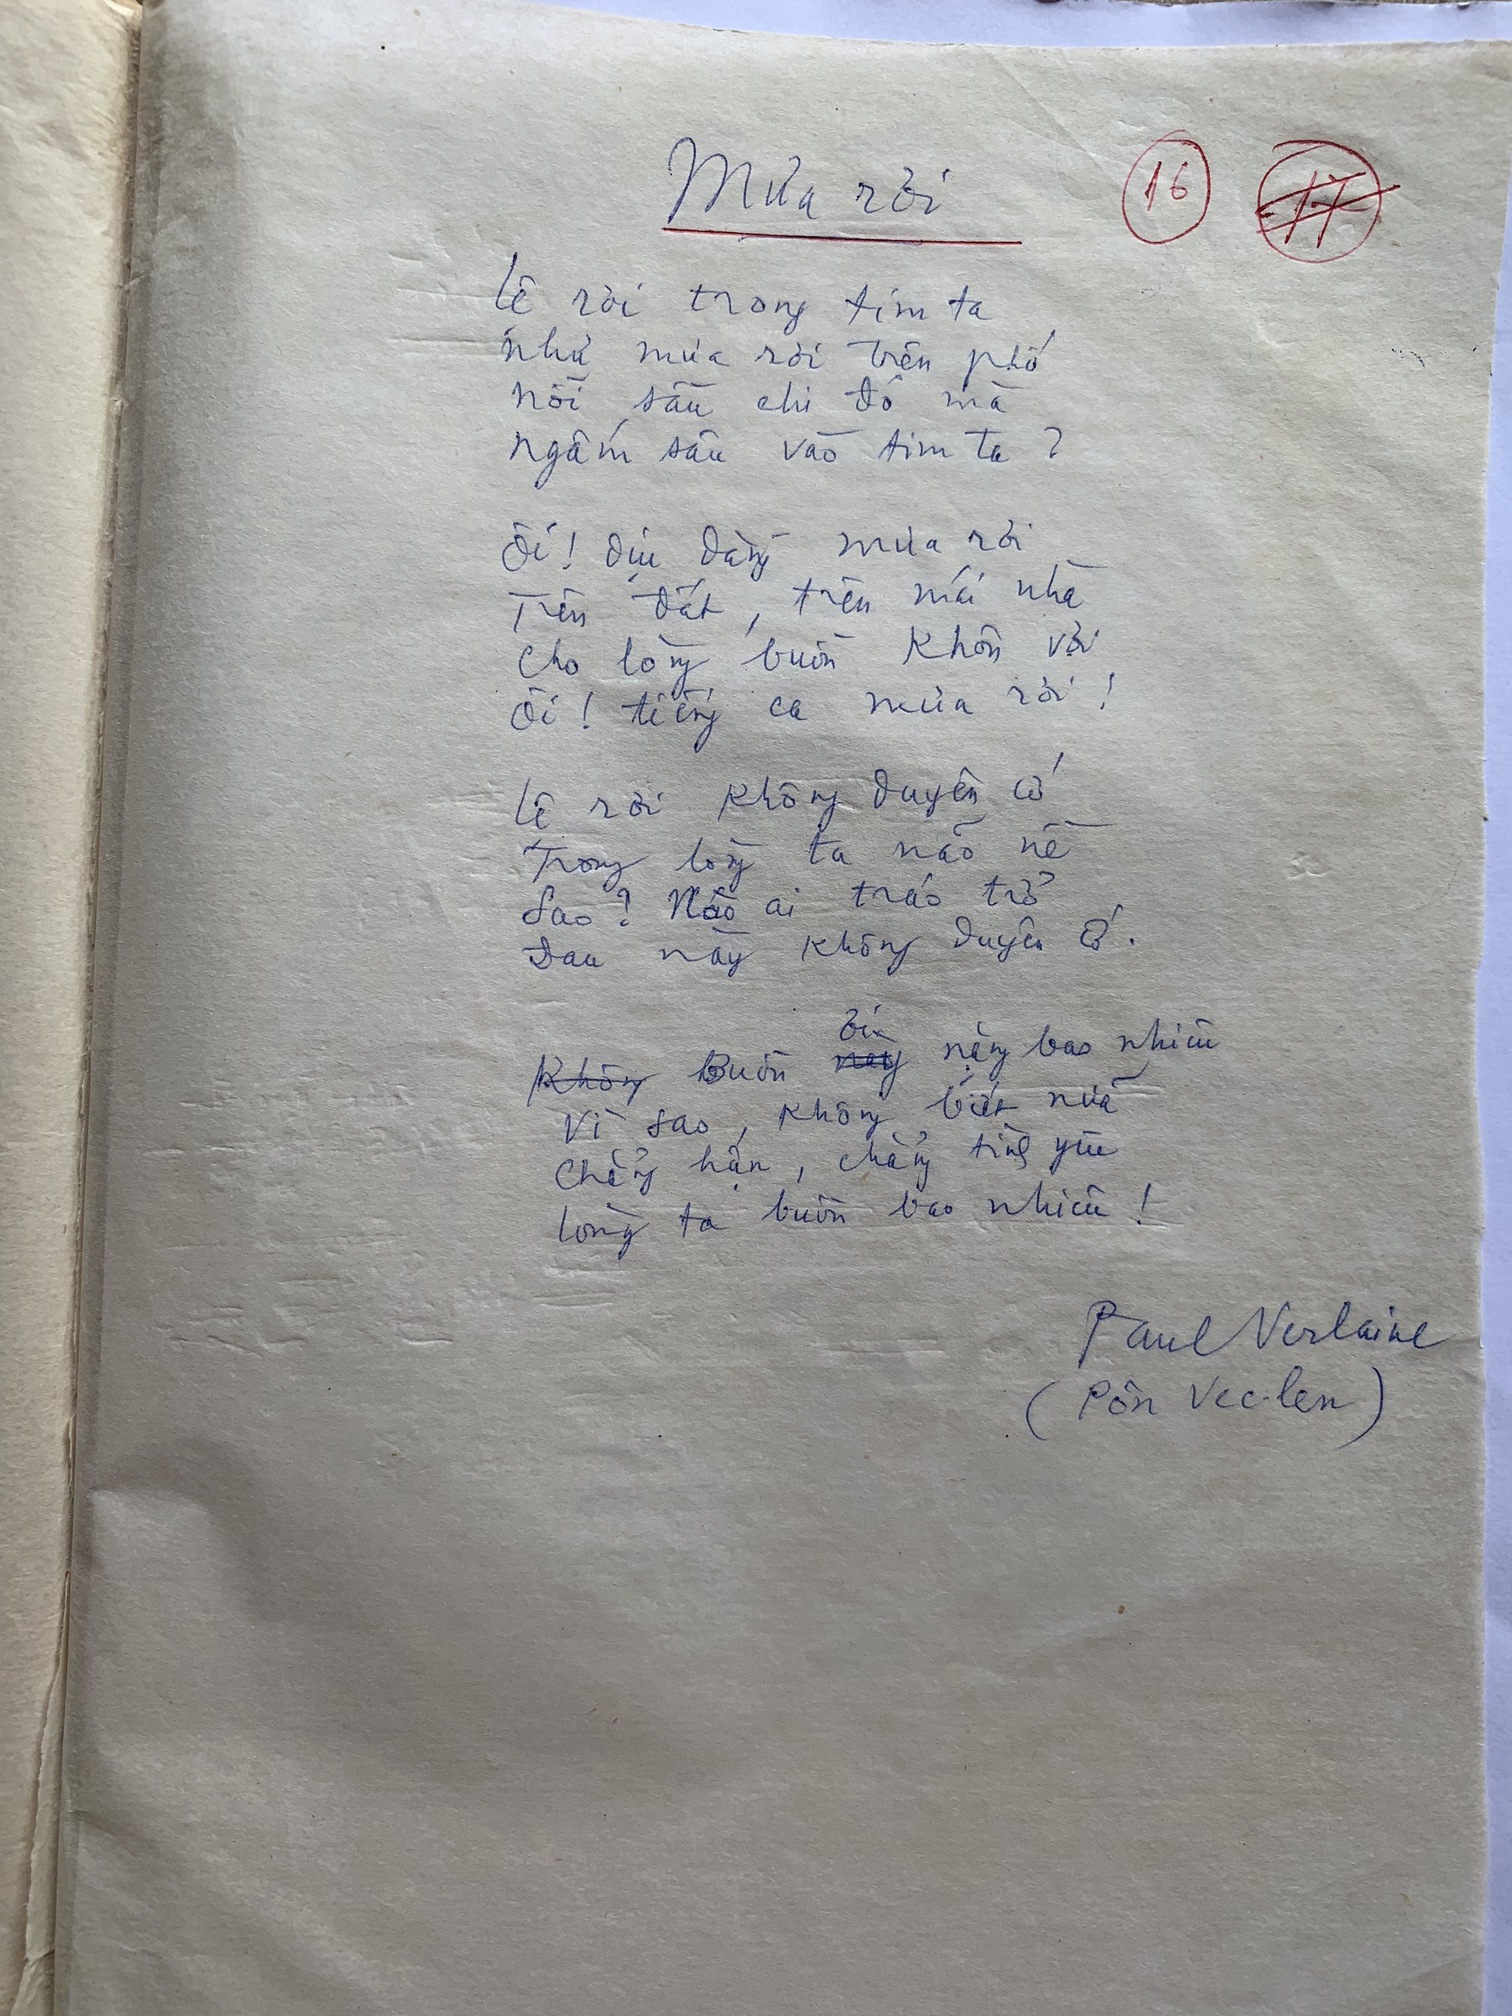 Mưa rơi
16 17
Lệ rơi trong tim ta
Như mưa rơi trên phố
Nỗi sầu chi đó mà
Ngấm sâu vào tim ta ?
Ôi ! dịu dàng mưa rơi
Trên đất , trên mái nhà
Cho lòng buồn khôn vơi
Ôi ! tiếng ca mưa rơi !
Lệ rơi không duyên cớ
Trong lòng ta não nề
Sao ? Nào ai tráo trở
Đau này không duyên cớ .
ới
Không Buồn này nặng bao nhiêu
Vì sao , không biết nữa
Chẳng hận , chẳng tình yêu
Lòng ta buồn bao nhiêu !
Paul Verlaine
( Pôn Vec-len )